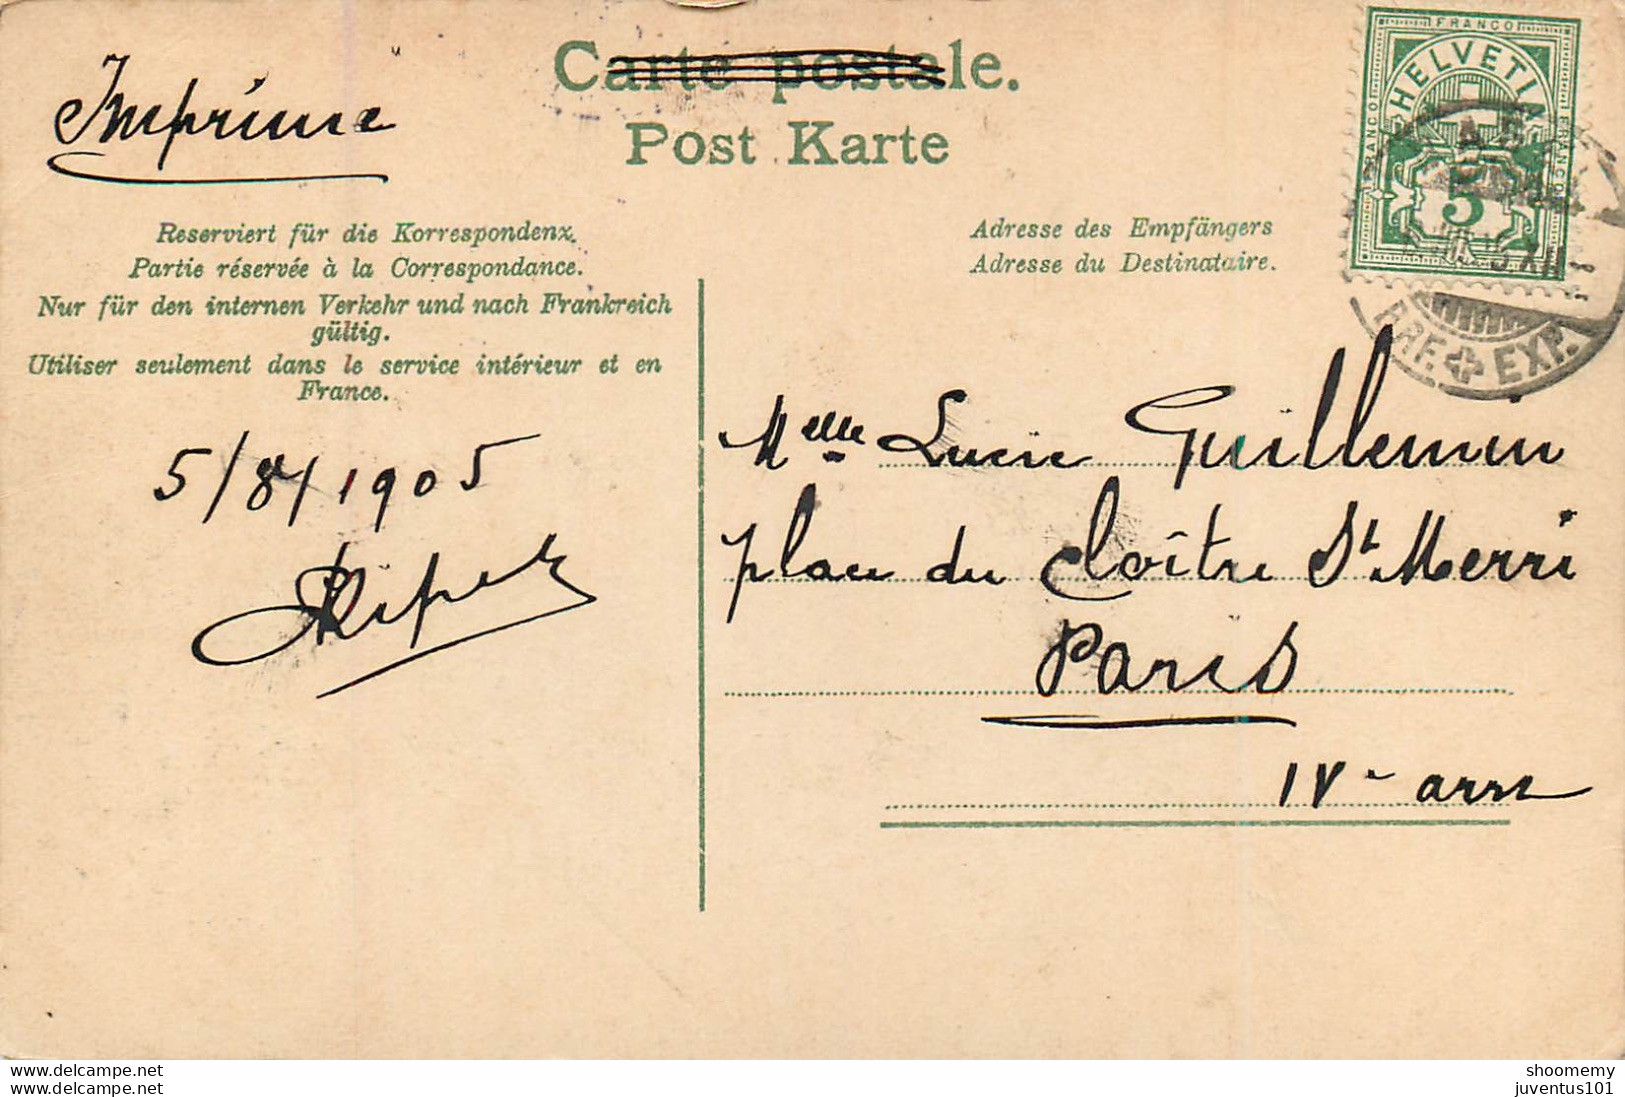 Carte postale.
Post Karte
Imprimé
FRANCO
HELVETIA
FRANCO
FRANCO
5
BRF. EXP.
Reserviert für die Korrespondenz.
Partie réservée à la Correspondance.
Nur für den internen Verkehr und nach Frankreich
gültig.
Utiliser seulement dans le service intérieur et en
France.
Adresse des Empfängers
Adresse du Destinataire.
5/8/1905
Melle Lucie Guillemin
place du Cloître St Merri
Paris
IVe arrt
delcampe.net
delcampe.net
shoomemy
juventus101